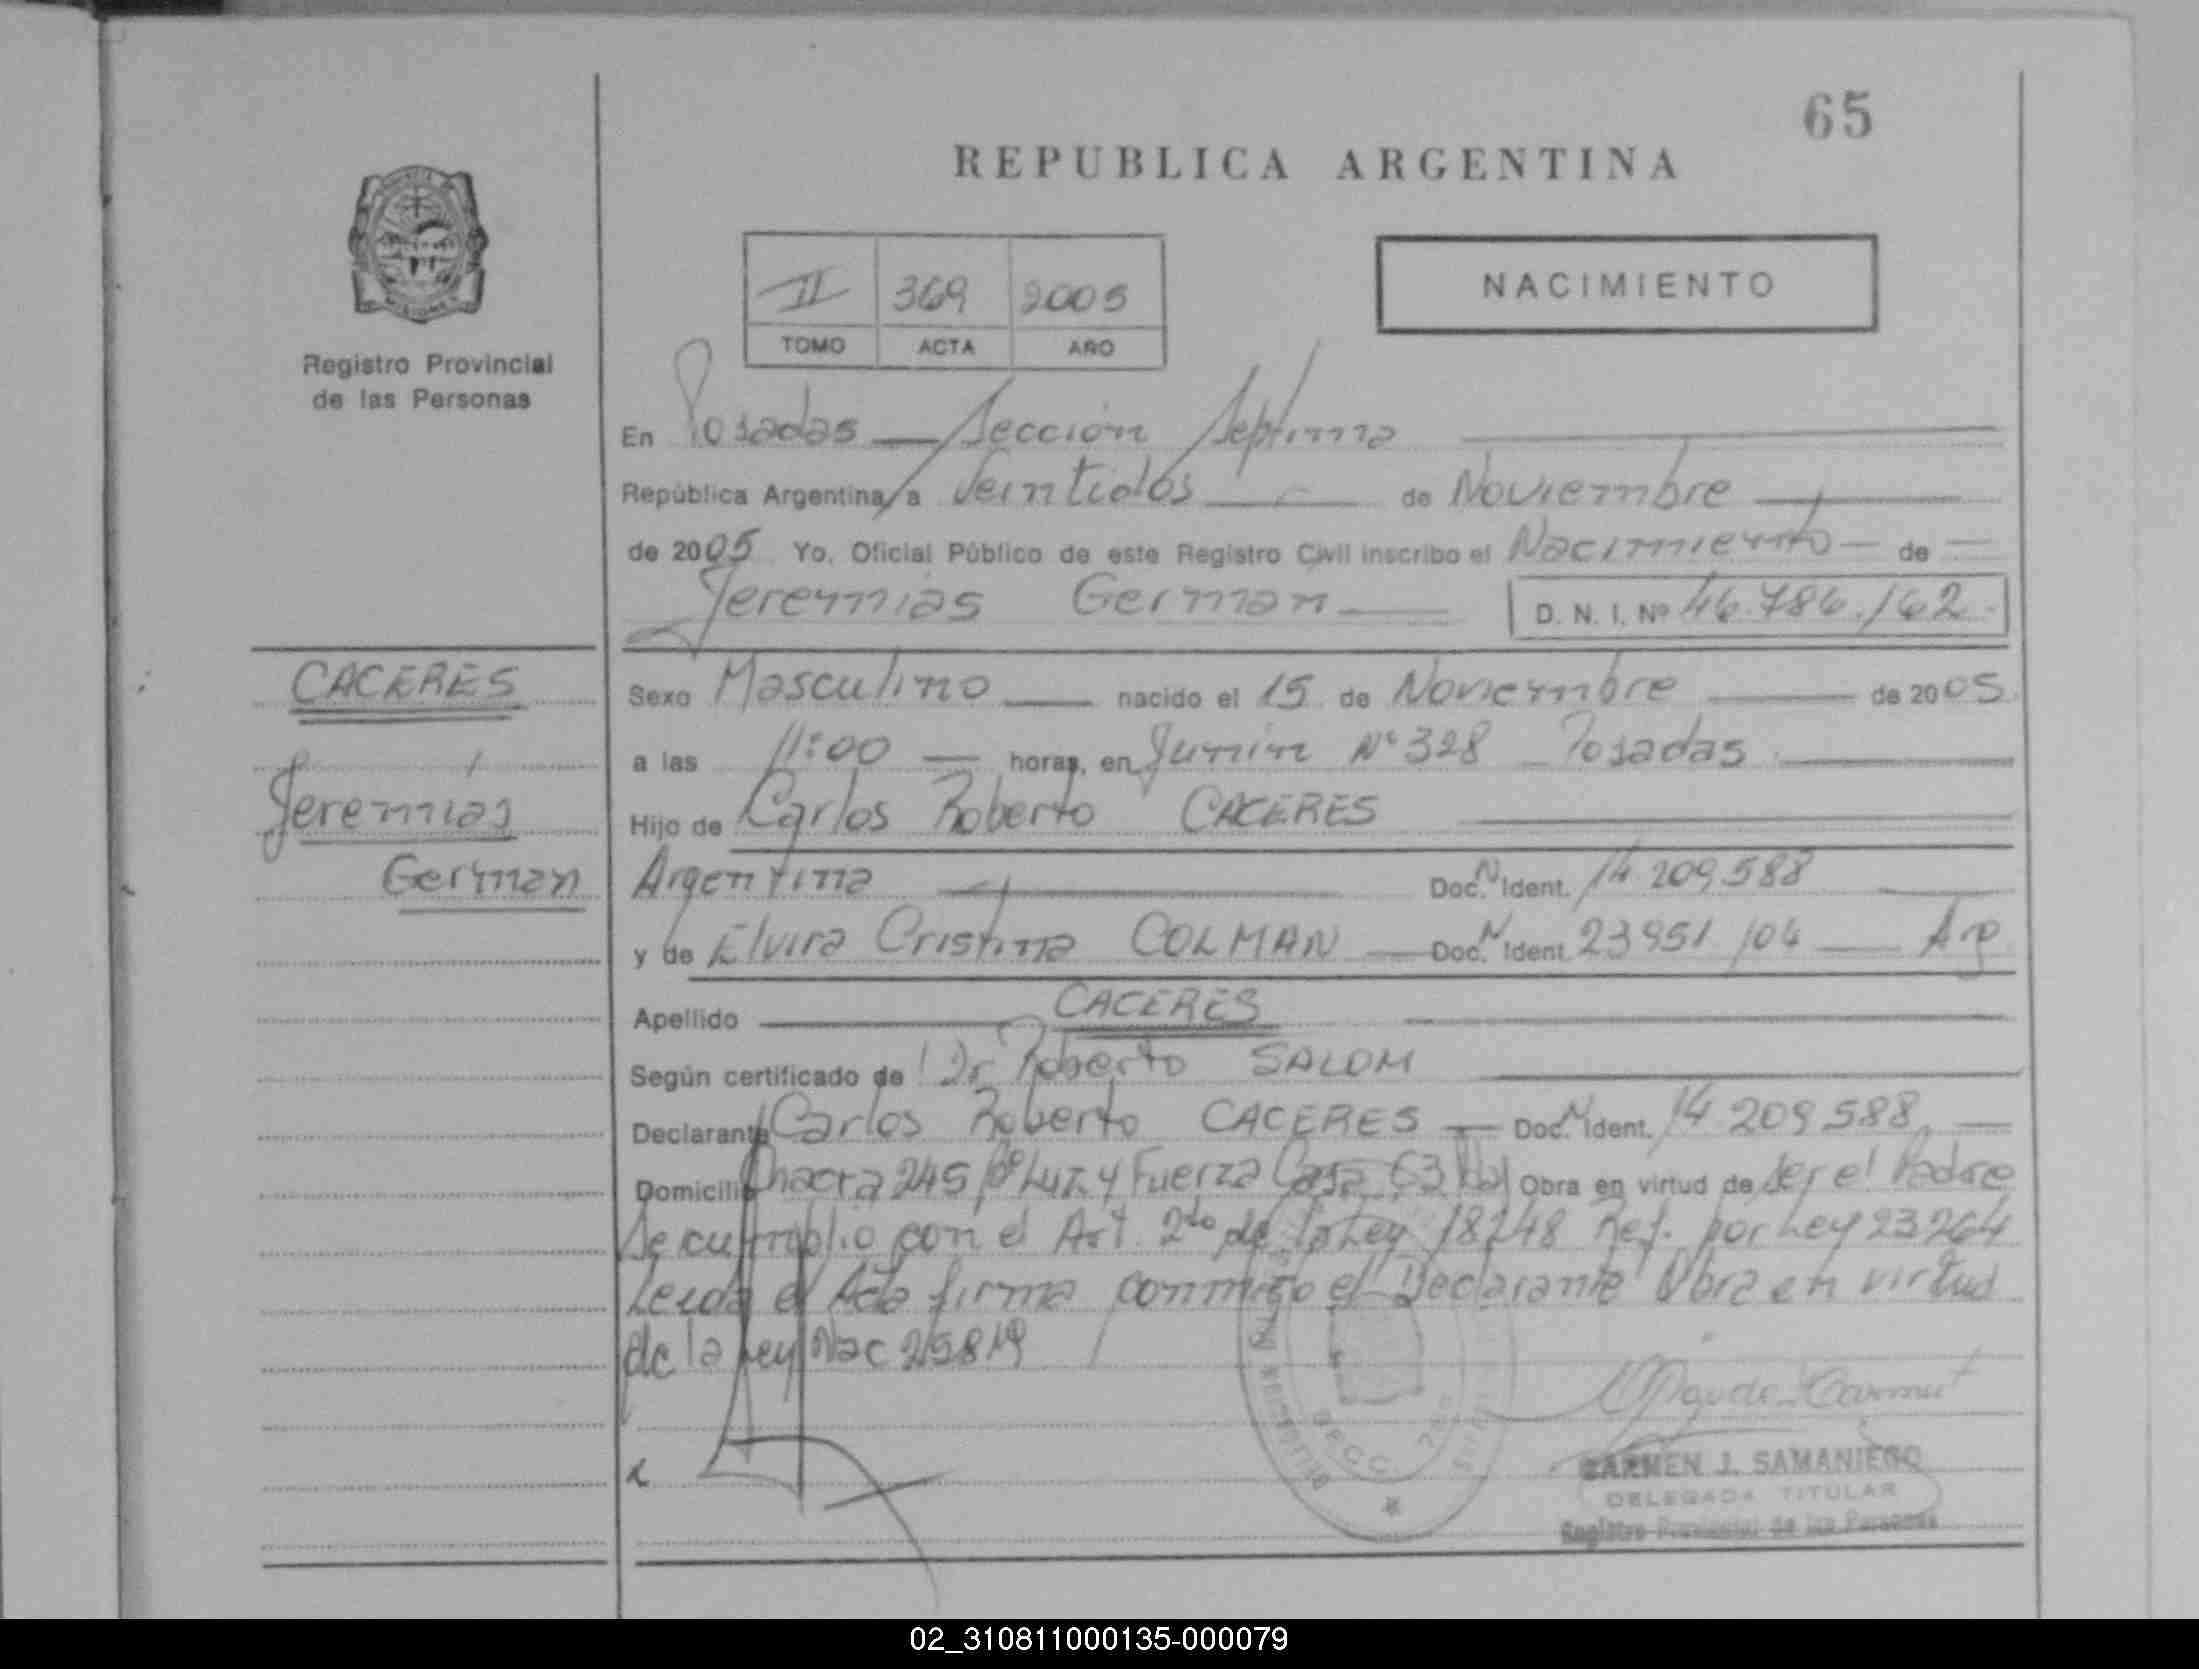 65
REPUBLICA ARGENTINA
II 369 2005
TOMO ACTA AÑO
NACIMIENTO
Registro Provincial
de las Personas
En Posadas — Sección Septima
República Argentina, a Veintidos de Noviembre
de 2005 Yo, Oficial Público de este Registro Civil inscribo el Nacimiento — de —
Jeremias German D. N. I. Nº 46.786.162.
CACERES
Jeremias
German
Sexo Masculino nacido el 15 de Noviembre de 2005.
a las 11:00 — horas, en Junin Nº 328 _ Posadas
Hijo de Carlos Roberto CACERES
Argentina Doc. N Ident. 14.209.588
y de Elvira Cristina COLMAN — Doc. N Ident. 23951104 — Arg
Apellido CACERES
Según certificado de Dr Roberto SALOM
Declarante Carlos Roberto CACERES — Doc. N Ident. 14 209 588. —
Domicilio Chacra 245 Bº Luz y Fuerza Casa 63 Obra en virtud de ser el Padre
Se cumplio con el Art. 2do de la Ley 18248 Ref. por Ley 23264
Leida el Acta firma conmigo el Declarante Obra en virtud
de la Ley Nac 25819
CARMEN J. SAMANIEGO
DELEGADA TITULAR
Registro Provincial de las Personas
02_310811000135-000079